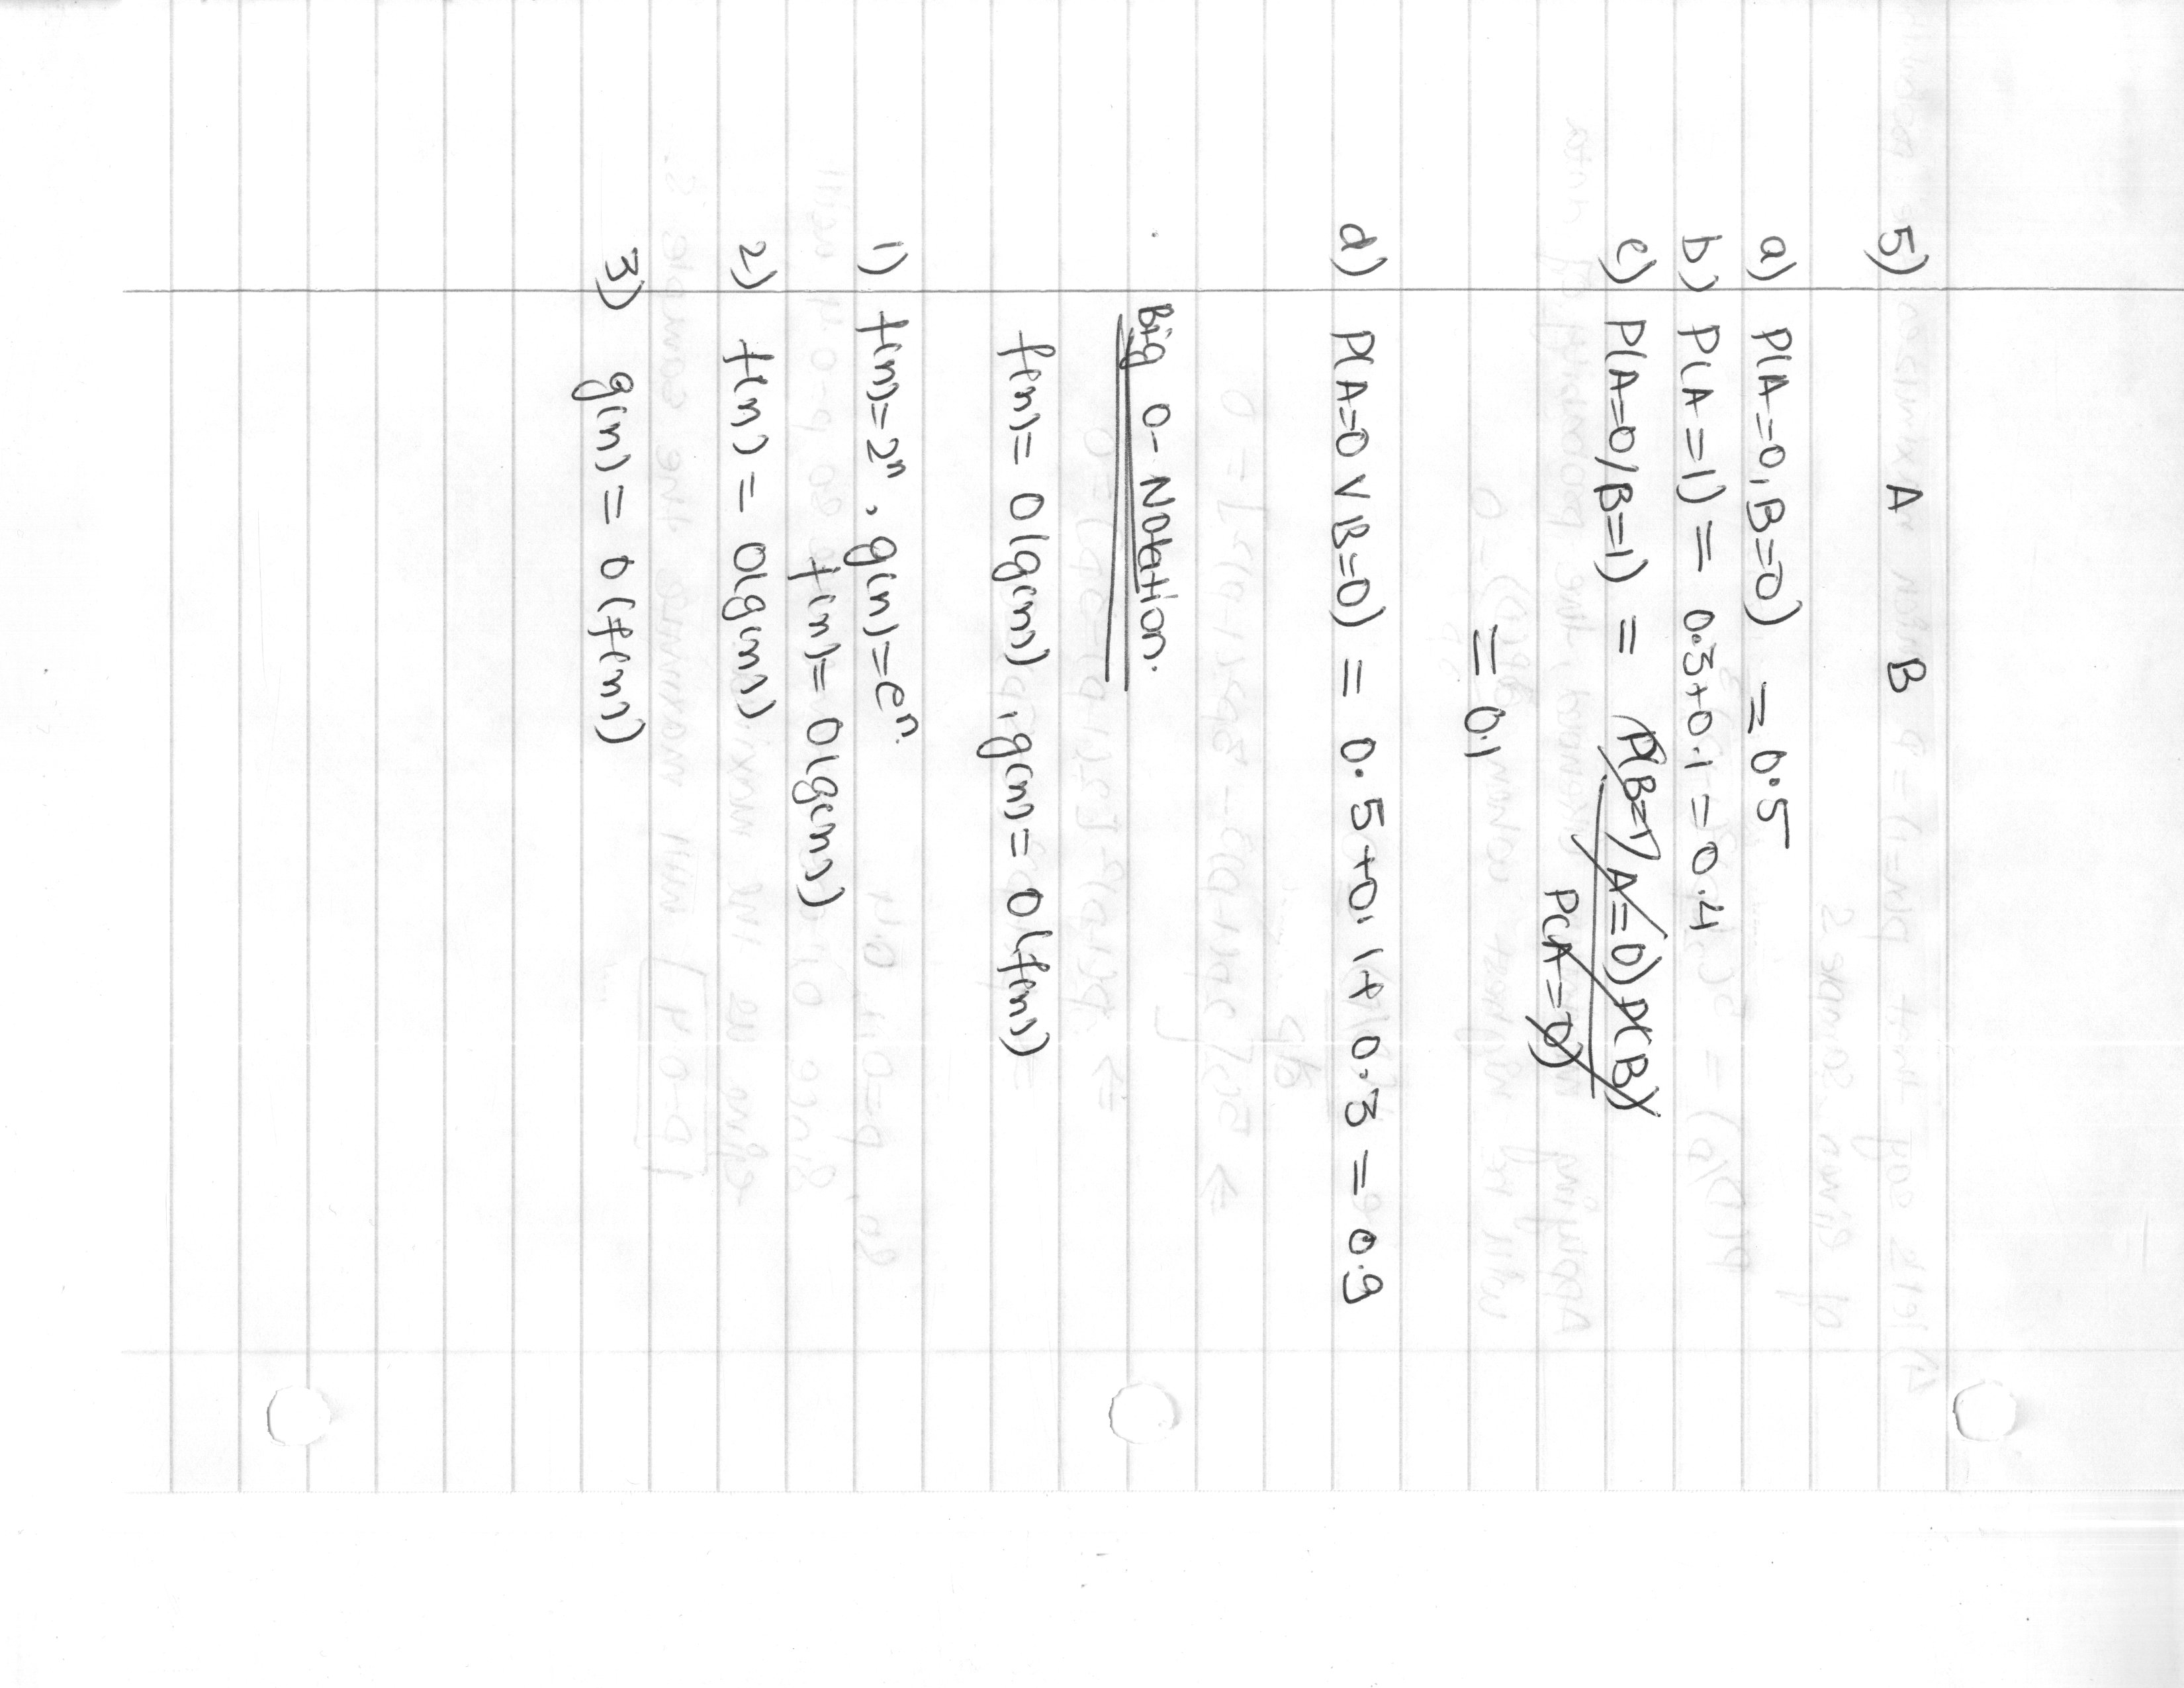 5) A B
a) P(A=0, B=0) = 0.5
b) P(A=1) = 0.3+0.1 = 0.4
c) P(A=0/B=1) = P(B=1/A=0)P(B)
P(A=0)
= 0.1
d) P(A=0 V B=0) = 0.5+0.1+0.3 = 0.9
Big O-Notation.
f(n) = O(g(n)), g(n) = O(f(n))
1) f(n)=2ⁿ, g(n)=eⁿ.
f(n) = O(g(n))
2) f(n) = O(g(n))
3) g(n) = O(f(n))